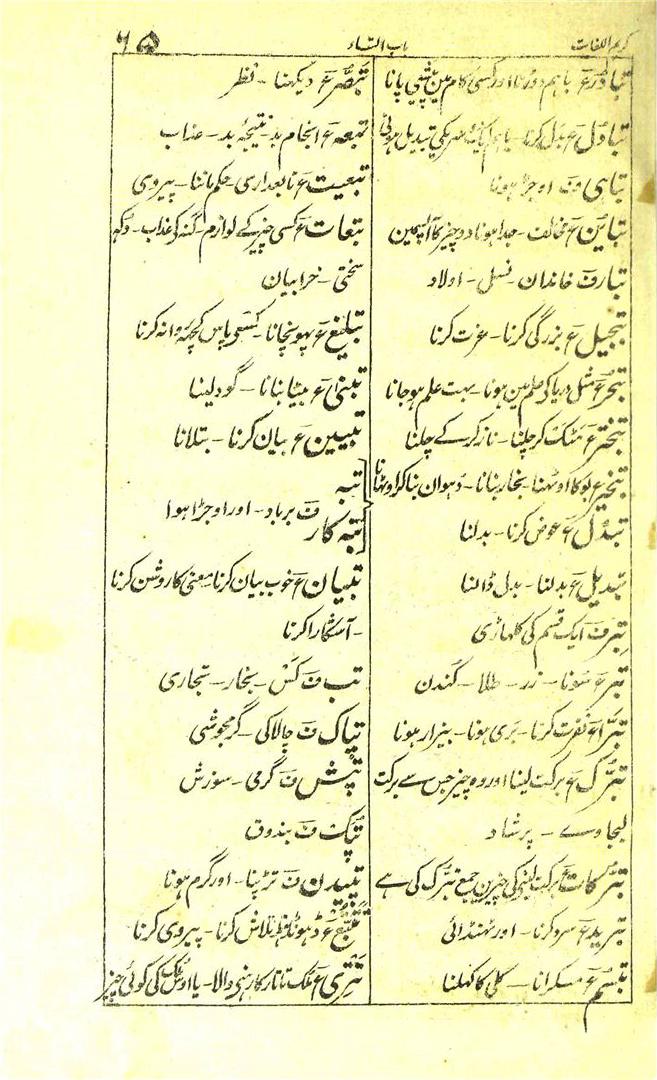 کریم اللغات
باب التاء
۶۵
تبادُر ع باہم دوڑنا اور کسی کام مین پیشی پانا
تبادُل ع بدل کرنا - باہم ایک دوسریکی تبدیل ہونی
تباہی ف اوجڑا ہونا
تبائین ع مخالف - جدا ہونا دو چیز کا آپسمین
تبار ف خاندان - نسل - اولاد
تبجیل ع بزرگی کرنا - عزت کرنا
تبحُر ع مثل دریا کے علم مین ہونا - بہت علم ہو جانا
تبختر ع مٹک کر چلنا - ناز کر کے چلنا
تبخیر ع بو کا اوٹھنا - بخار بنانا - دہوان بنا کر اوٹھانا
تبدُل ع عوض کرنا - بدلنا
تبدیل ع بدلنا - بدل ڈالنا
تبر ف ایک قسم کی کلہاڑی
تبر ع سونا - زر - طلا - کندن
تبرّا ع نفرت کرنا - بری ہونا - بیزار ہونا
تبرّک ع برکت لینا اور وہ چیز جس سے برکت
لیجاوے - پرشاد
تبرّکات ع برکت لینے کی چیزین جمع تبرّک کی ہے
تبرید ع سرد کرنا - اور ٹھنڈائی
تبسّم ع مسکرانا - کلی کا کھلنا
تبصّر ع دیکھنا - نظر
تبعہ ع انجام بد - نتیجۂ بد - عذاب
تبعیت ع تابعداری - حکم ماننا - پیروی
تبعات ع کسی چیز کے لوازم - گنہ کے عذاب - دکھ
سختی - خرابیان
تبلیغ ع پہونچانا - کسی پاس کچھ روانہ کرنا
تبنی ع بیٹا بنانا - گود لینا
تبیین ع بیان کرنا - بتلانا
تبہ
تبہ کار
ف برباد - اور اوجڑا ہوا
تبیان ع خوب بیان کرنا معنی کا روشن کرنا
- آشکارا کرنا
تب ف کس - بخار - تجاری
تپاک ف چالاکی - گرمجوشی
تپش ف گرمی - سوزش
تپک ف بندوق
تپیدن ف تڑپنا - اور گرم ہونا
تتبّع ع ڈھونڈنا تلاش کرنا - پیروی کرنا
تتری ع ملک تاتار کا رہنے والا - یا اوس ملک کی کوئی چیز